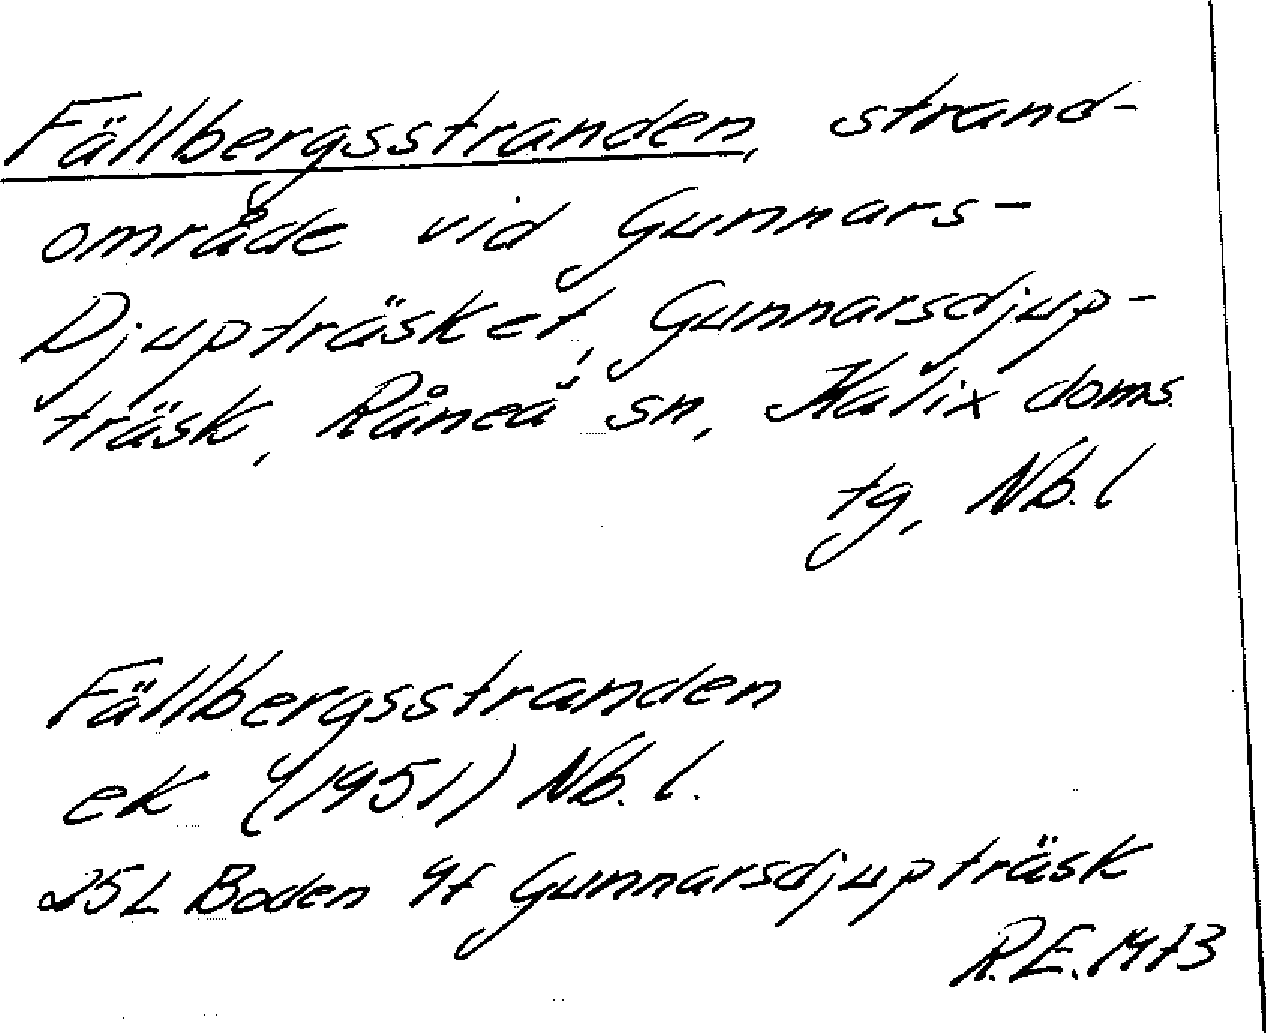 Fällbergsstranden, strand-
område vid Gunnars-
Djupträsket, Gunnarsdjup-
träsk, Råneå sn, Kalix doms.
tg, Nb. l
Fällbergsstranden
ek (1951) Nb. l.
25L Boden 9f Gunnarsdjupträsk
R.E. 1973